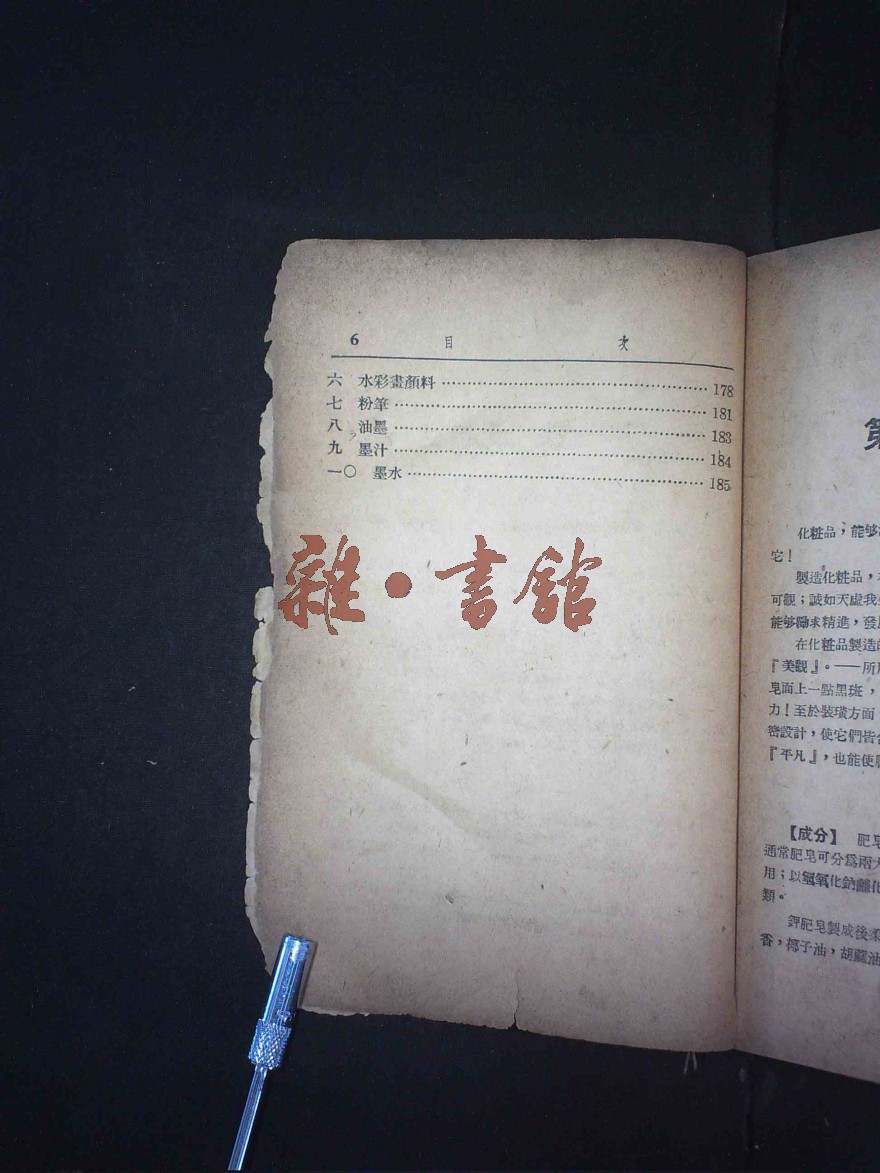 6 目 次
六 水彩畫顏料 178
七 粉筆 181
八 油墨 183
九 墨汁 184
一〇 墨水 185
雜·書館
第
化粧品，能够
它！
製造化粧品，
可觀；誠如天虛我
能够勵求精進，發
在化粧品製造
『美觀』。——所
皂面上一點黑斑，
力！至於裝璜方面
密設計，使它們皆
『平凡』，也能使
【成分】 肥皂
通常肥皂可分爲兩大
用；以氫氧化鈉鹼化
類。
鉀肥皂製成後柔
香，椰子油，胡蔴油